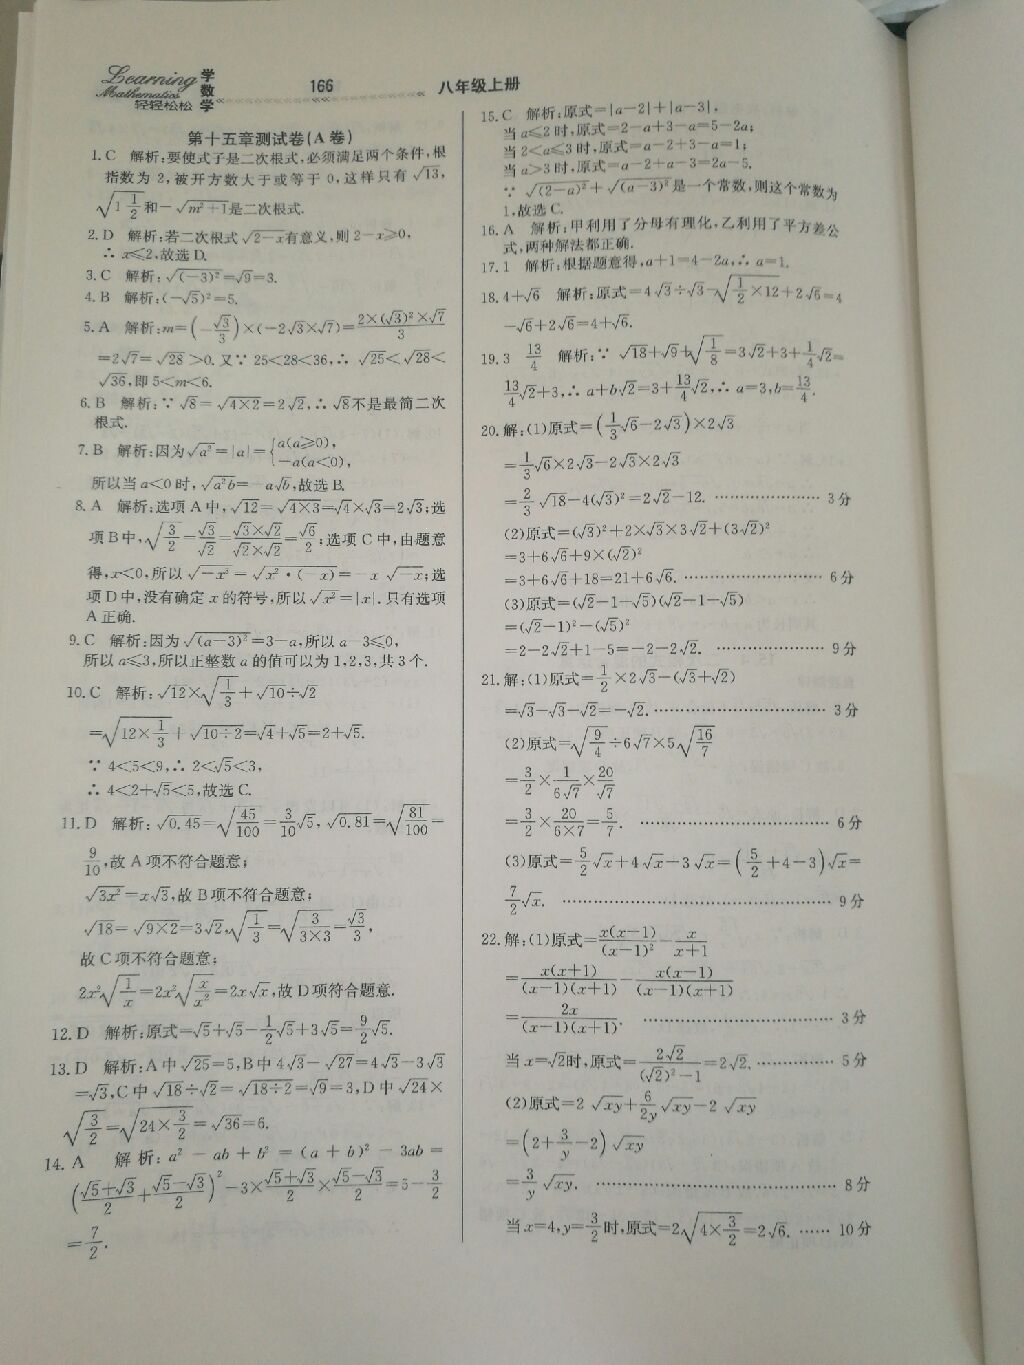 Learning
Mathematics
轻轻松松
学数学
166
八年级上册
第十五章测试卷(A 卷)
1. C 解析:要使式子是二次根式,必须满足两个条件,根
指数为 2,被开方数大于或等于 0,这样只有 √13,
√(1 1/2) 和 −√(m²+1)是二次根式.
2. D 解析:若二次根式 √(2−x)有意义,则 2−x≥0,
∴ x≤2,故选 D.
3. C 解析:√((−3)²)=√9=3.
4. B 解析:(−√5)²=5.
5. A 解析:m=(−√3/3)×(−2√3×√7)=(2×(√3)²×√7)/3
=2√7=√28>0. 又∵ 25<28<36,∴ √25<√28<
√36,即 5<m<6.
6. B 解析:∵ √8=√(4×2)=2√2,∴ √8不是最简二次
根式.
7. B 解析:因为√(a²)=|a|={a(a≥0),
−a(a<0),
所以当 a<0 时,√(a²b)=−a√b,故选 B.
8. A 解析:选项 A 中,√12=√(4×3)=√4×√3=2√3;选
项 B 中,√(3/2)=√3/√2=(√3×√2)/(√2×√2)=√6/2;选项 C 中,由题意
得,x<0,所以 √(−x³)=√(x²·(−x))=−x√(−x);选
项 D 中,没有确定 x 的符号,所以√(x²)=|x|. 只有选项
A 正确.
9. C 解析:因为√((a−3)²)=3−a,所以 a−3≤0,
所以 a≤3,所以正整数 a 的值可以为 1,2,3,共 3 个.
10. C 解析:√12×√(1/3)+√10÷√2
=√(12×1/3)+√(10÷2)=√4+√5=2+√5.
∵ 4<5<9,∴ 2<√5<3,
∴ 4<2+√5<5,故选 C.
11. D 解析:√0.45=√(45/100)=3/10√5,√0.81=√(81/100)=
9/10,故 A 项不符合题意;
√(3x²)=x√3,故 B 项不符合题意;
√18=√(9×2)=3√2,√(1/3)=√(3/(3×3))=√3/3,
故 C 项不符合题意;
2x²√(1/x)=2x²√(x/x²)=2x√x,故 D 项符合题意.
12. D 解析:原式=√5+√5−1/2√5+3√5=9/2√5.
13. D 解析:A 中√25=5,B 中 4√3−√27=4√3−3√3
=√3,C 中√18÷√2=√(18÷2)=√9=3,D 中√24×
√(3/2)=√(24×3/2)=√36=6.
14. A 解析:a²−ab+b²=(a+b)²−3ab=
((√5+√3)/2+(√5−√3)/2)²−3×(√5+√3)/2×(√5−√3)/2=5−3/2
=7/2.
15. C 解析:原式=|a−2|+|a−3|,
当 a≤2 时,原式=2−a+3−a=5−2a;
当 2<a≤3 时,原式=a−2+3−a=1;
当 a>3 时,原式=a−2+a−3=2a−5.
∵ √((2−a)²)+√((a−3)²)是一个常数,则这个常数为
1,故选 C.
16. A 解析:甲利用了分母有理化,乙利用了平方差公
式,两种解法都正确.
17. 1 解析:根据题意得,a+1=4−2a,∴ a=1.
18. 4+√6 解析:原式=4√3÷√3−√(1/2×12)+2√6=4
−√6+2√6=4+√6.
19. 3 13/4 解析:∵ √18+√9+√(1/8)=3√2+3+1/4√2=
13/4√2+3,∴ a+b√2=3+13/4√2,∴ a=3,b=13/4.
20. 解:(1)原式=(1/3√6−2√3)×2√3
=1/3√6×2√3−2√3×2√3
=2/3√18−4(√3)²=2√2−12. ………………… 3 分
(2)原式=(√3)²+2×√3×3√2+(3√2)²
=3+6√6+9×(√2)²
=3+6√6+18=21+6√6. ………………… 6 分
(3)原式=(√2−1−√5)(√2−1+√5)
=(√2−1)²−(√5)²
=2−2√2+1−5=−2−2√2. ………………… 9 分
21. 解:(1)原式=1/2×2√3−(√3+√2)
=√3−√3−√2=−√2. ………………… 3 分
(2)原式=√(9/4)÷6√7×5√(16/7)
=3/2×1/(6√7)×20/√7
=3/2×20/(6×7)=5/7. ………………… 6 分
(3)原式=5/2√x+4√x−3√x=(5/2+4−3)√x=
7/2√x. ………………… 9 分
22. 解:(1)原式=x(x−1)/(x−1)²−x/(x+1)
=x(x+1)/((x−1)(x+1))−x(x−1)/((x−1)(x+1))
=2x/((x−1)(x+1)). ………………… 3 分
当 x=√2时,原式=2√2/((√2)²−1)=2√2. ………… 5 分
(2)原式=2√(xy)+6/(2y)√(xy)−2√(xy)
=(2+3/y−2)√(xy)
=3/y√(xy). ………………… 8 分
当 x=4,y=3/2时,原式=2√(4×3/2)=2√6. …… 10 分